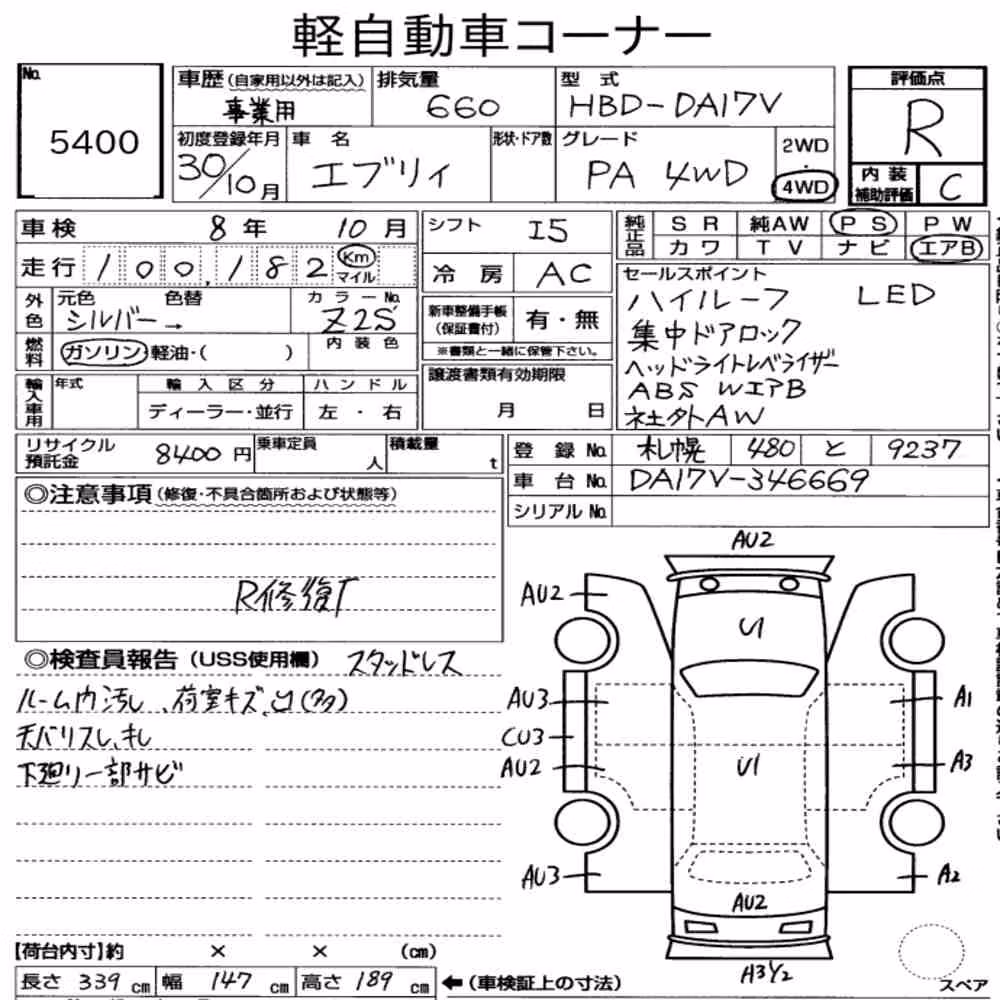 軽自動車コーナー
No. 5400
車歴(自家用以外は記入) 事業用
排気量 660
型式 HBD-DA17V
評価点 R
初度登録年月 30/10月
車名 エブリィ
形状・ドア数
グレード PA 4WD
2WD
4WD
内装補助評価 C
車検 8年 10月
走行 100,182 Km マイル
シフト I5
冷房 AC
純正品 SR 純AW PS PW
カワ TV ナビ エアB
外色 元色 シルバー→ 色替
カラーNo. Z2S
燃料 ガソリン・軽油・( )
内装色
新車整備手帳(保証書付) 有・無
※書類と一緒に保管下さい。
セールスポイント
ハイルーフ LED
集中ドアロック
ヘッドライトレベライザー
ABS WエアB
社外AW
輸入車用 年式
輸入区分 ディーラー・並行
ハンドル 左・右
譲渡書類有効期限 月 日
リサイクル預託金 8400円
乗車定員 人
積載量 t
登録No. 札幌 480 と 9237
車台No. DA17V-346669
シリアルNo.
◎注意事項(修復・不具合箇所および状態等)
R修復有
◎検査員報告(USS使用欄) スタッドレス
ルーム内汚し、荷室キズ、凹(多)
天バリスレ、キレ
下廻り一部サビ
AU2
AU2
U1
AU3
A1
CU3
AU2
U1
A3
AU3
A2
AU2
A3Y2
スペア
【荷台内寸】約 × × (cm)
長さ 339 cm 幅 147 cm 高さ 189 cm ←(車検証上の寸法)